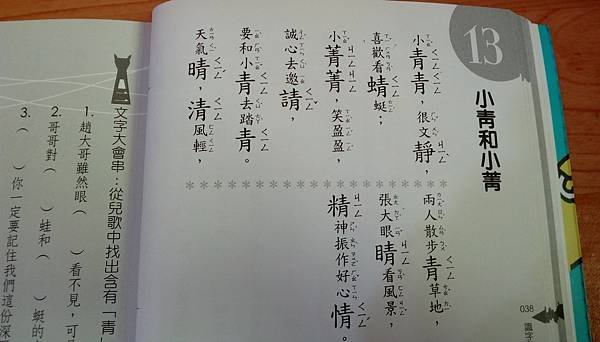 13
小青和小菁
小青青，很文靜，
喜歡看蜻蜓；
小菁菁，笑盈盈，
誠心去邀請，
要和小青去踏青。
天氣晴，清風輕，
兩人散步青草地，
張大眼睛看風景，
精神振作好心情。
038
識字
文字大會串：從兒歌中找出含有「青」
1. 趙大哥雖然眼（　）看不見，可
2. 哥哥對（　）蛙和（　）蜓的
3. （　）你一定要記住我們這份深